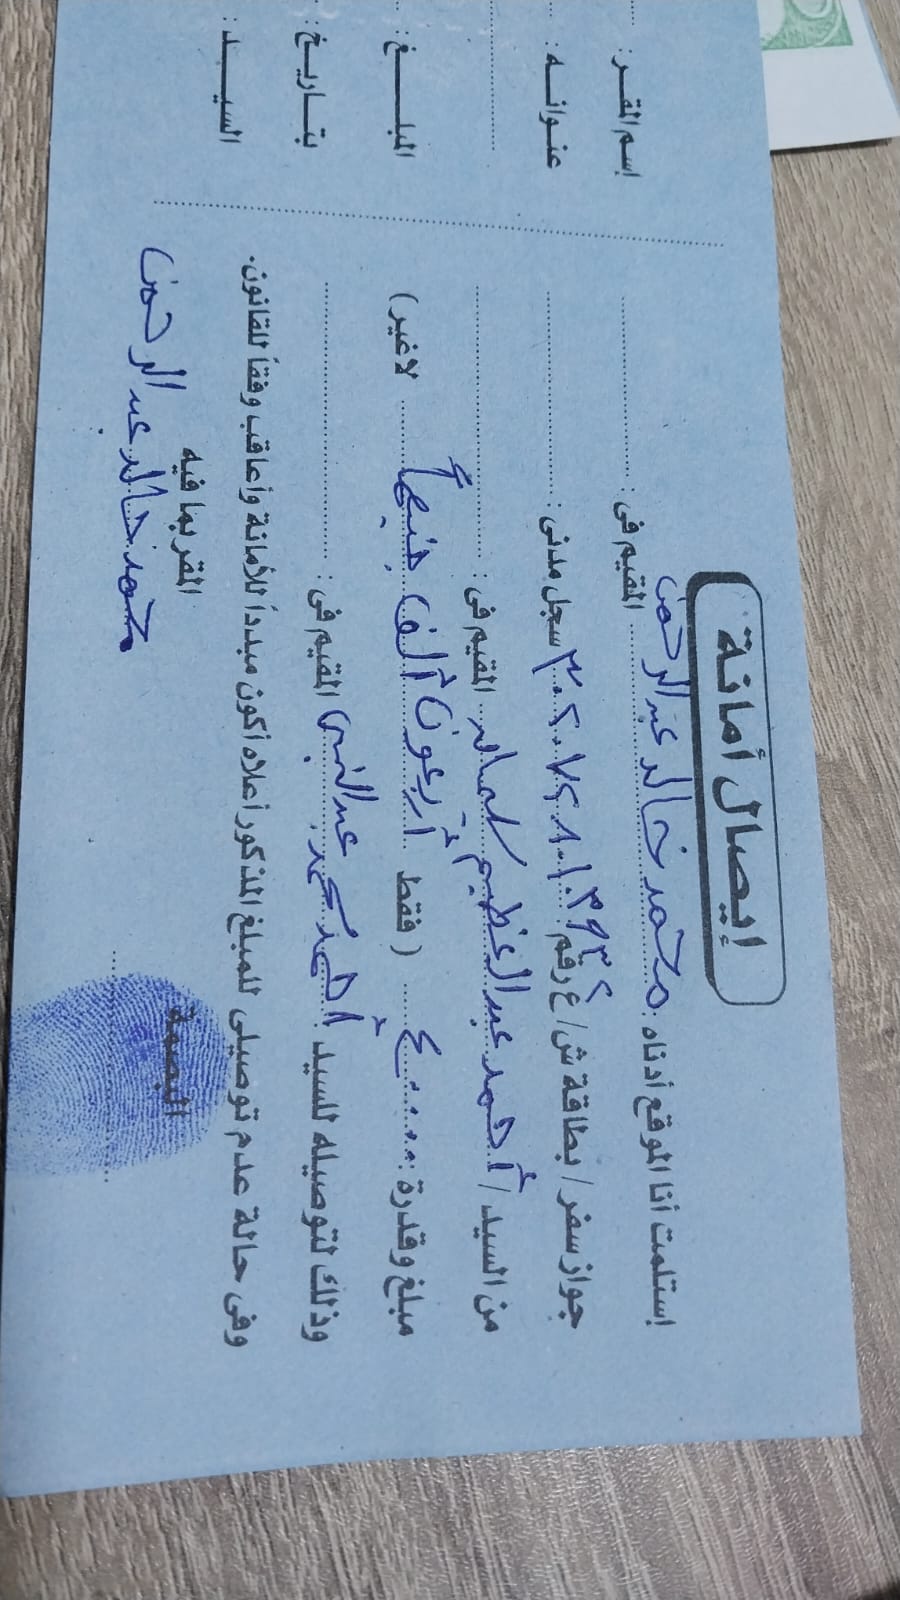 إيصال أمانة
إستلمت أنا الموقع أدناه: محمد خالد عبد الرحمن المقيم فى:
جواز سفر / بطاقة ش / ع رقم ٣٠٢٠٧٢٨٠١٠٣٩٣٤ سجل مدنى:
من السيد / أحمد عبد العظيم المقيم فى:
مبلغ وقدرة: ٤٠٠٠٠ ( فقط أربعون ألف جنيهاً لاغير)
وذلك لتوصيله للسيد / أحمد محمد عبد النبى المقيم فى:
وفى حالة عدم توصيلى للمبلغ المذكور أعلاه أكون مبدداً للأمانة وأعاقب وفقاً للقانون.
البصمة
المقر بما فيه
محمد خالد عبد الرحمن
إسم المقر:
عنوانه:
المبلغ:
بتاريخ:
السيد: